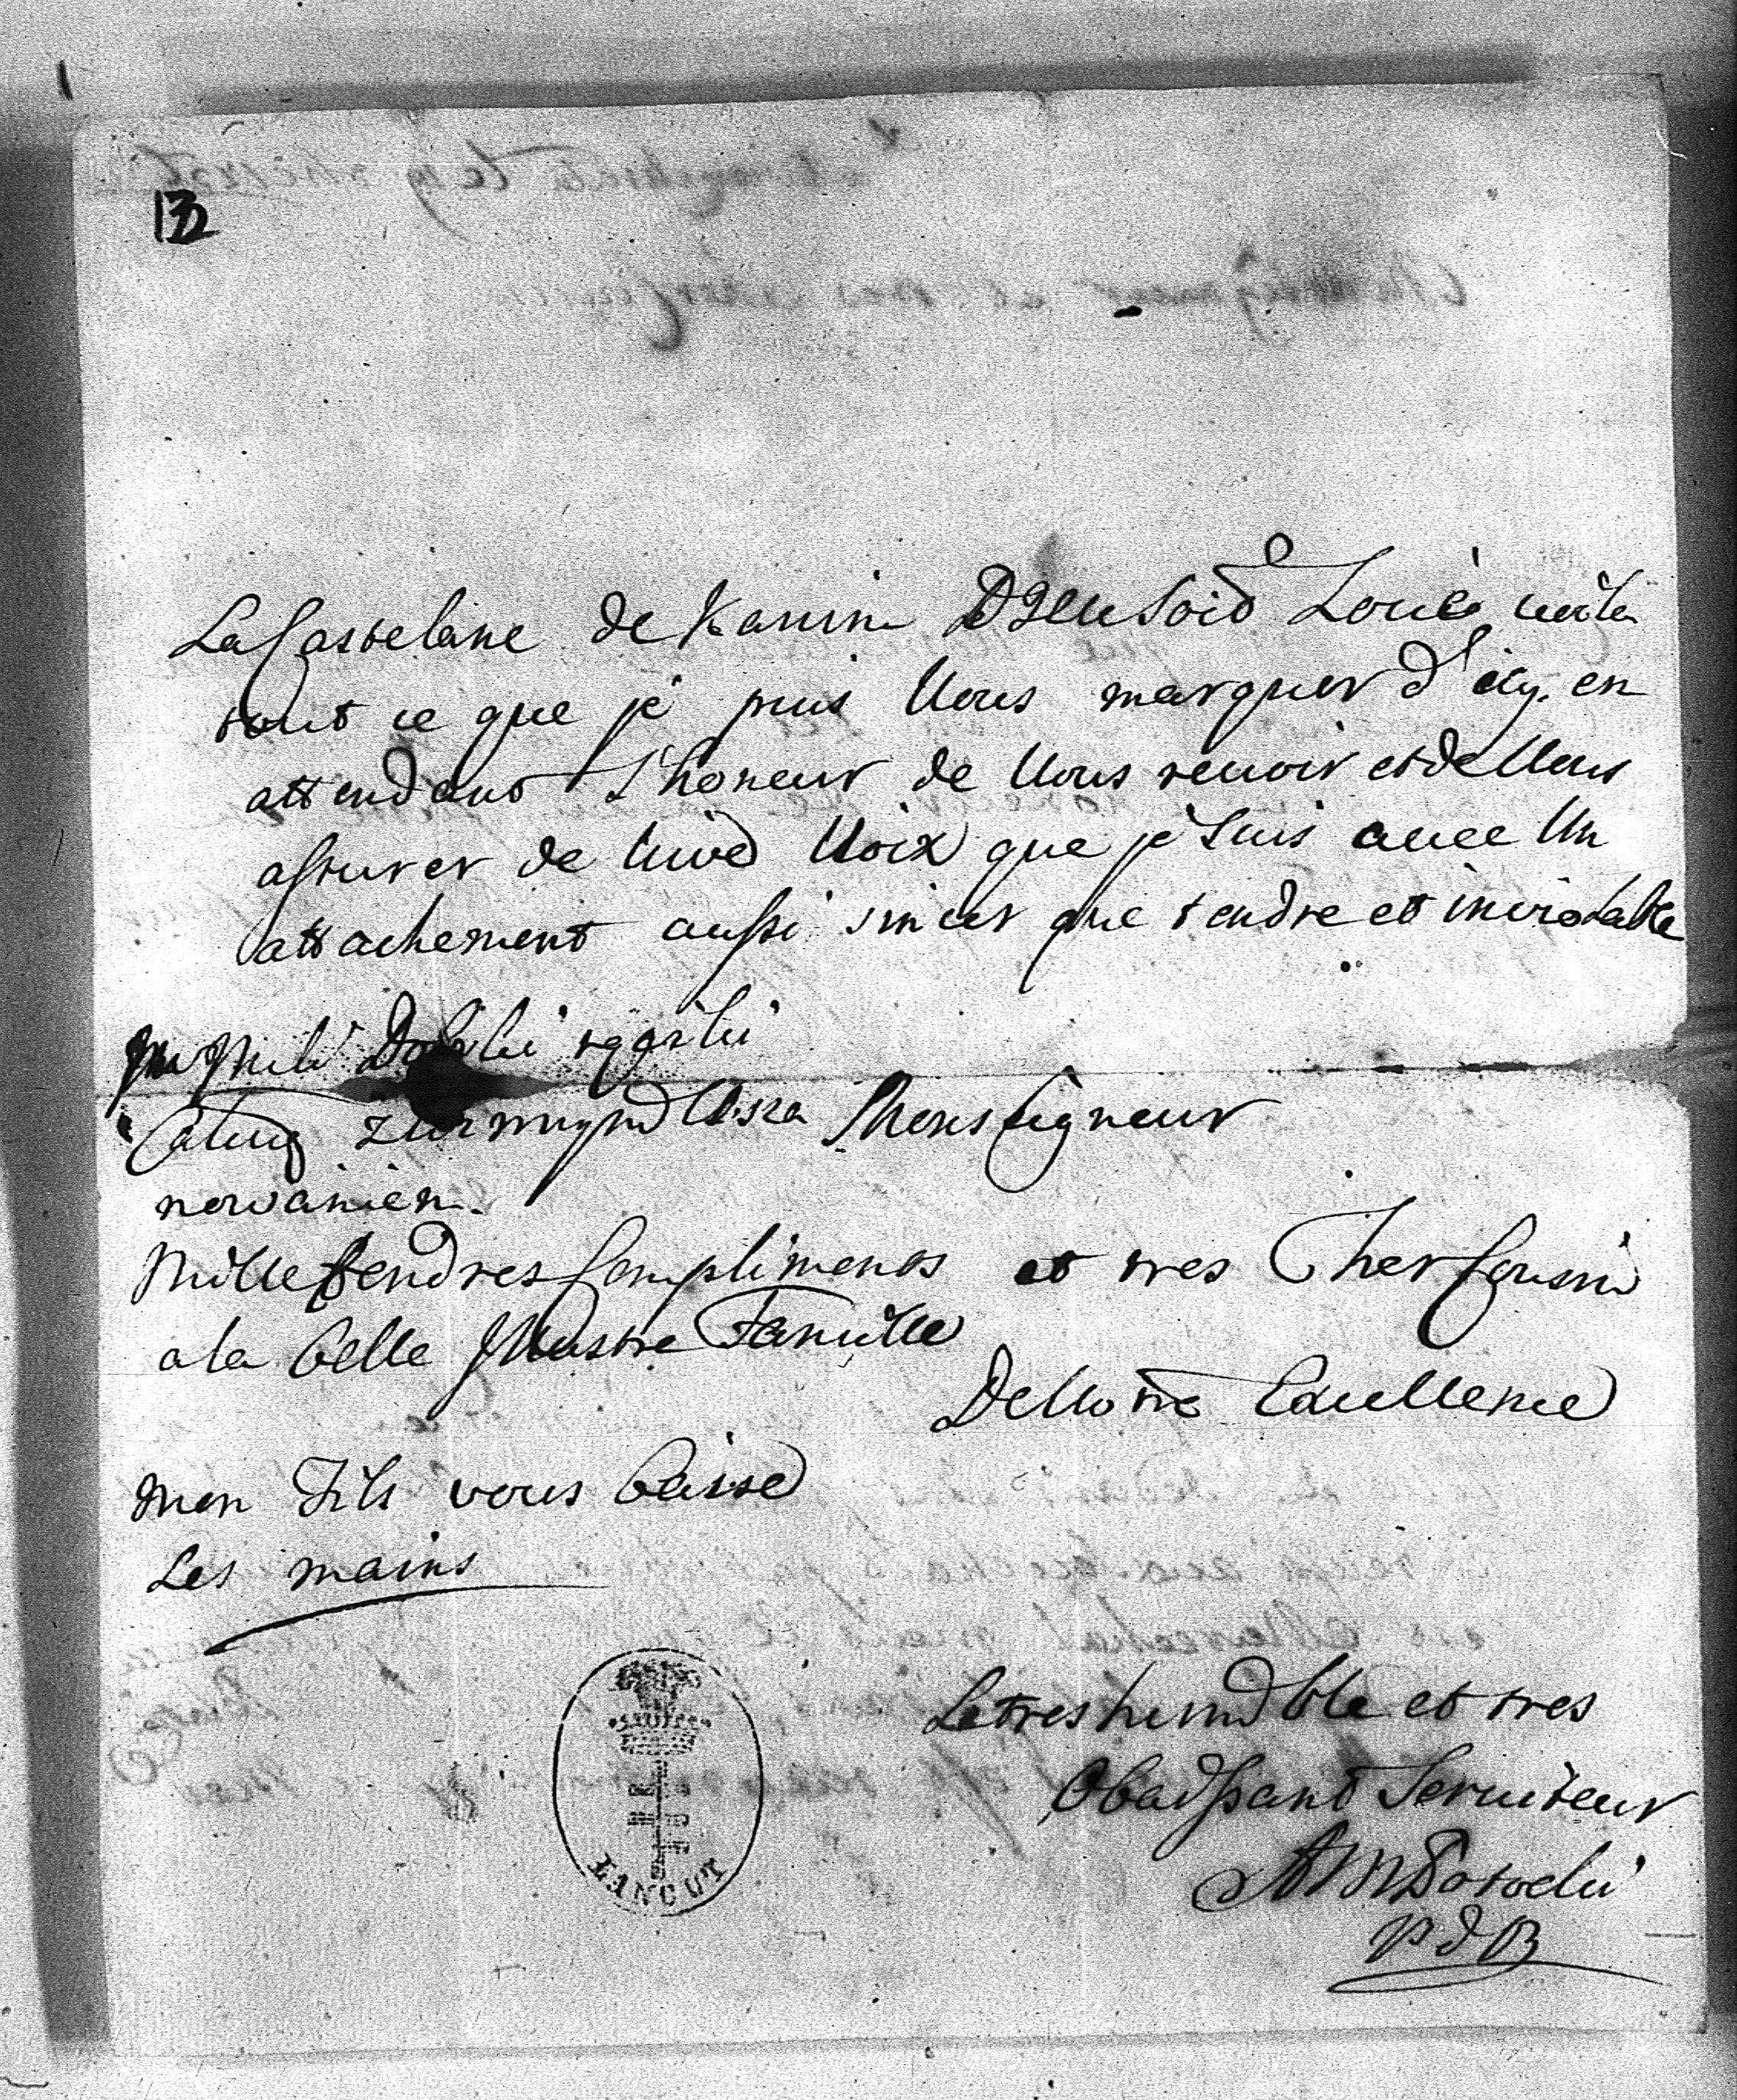 132
La Castelane de Kamin Dieu soit Loué, voila
tout ce que je puis Vous marquer d'icy. en
attendant L'honeur de Vous revoir et de Vous
assurer de Vive Voix que je suis avec Un
attachement aussi sincer que tendre et inviolable
Monseigneur
nowaniem.
Mille tendres Compliments et tres Cher Cousin
a la belle Illustre Famille
De Votre Excellence
mon Fils vous baise
Les mains
Le tres humble et tres
Obaissant Serviteur
AMPotocki
P d B
LANCUT